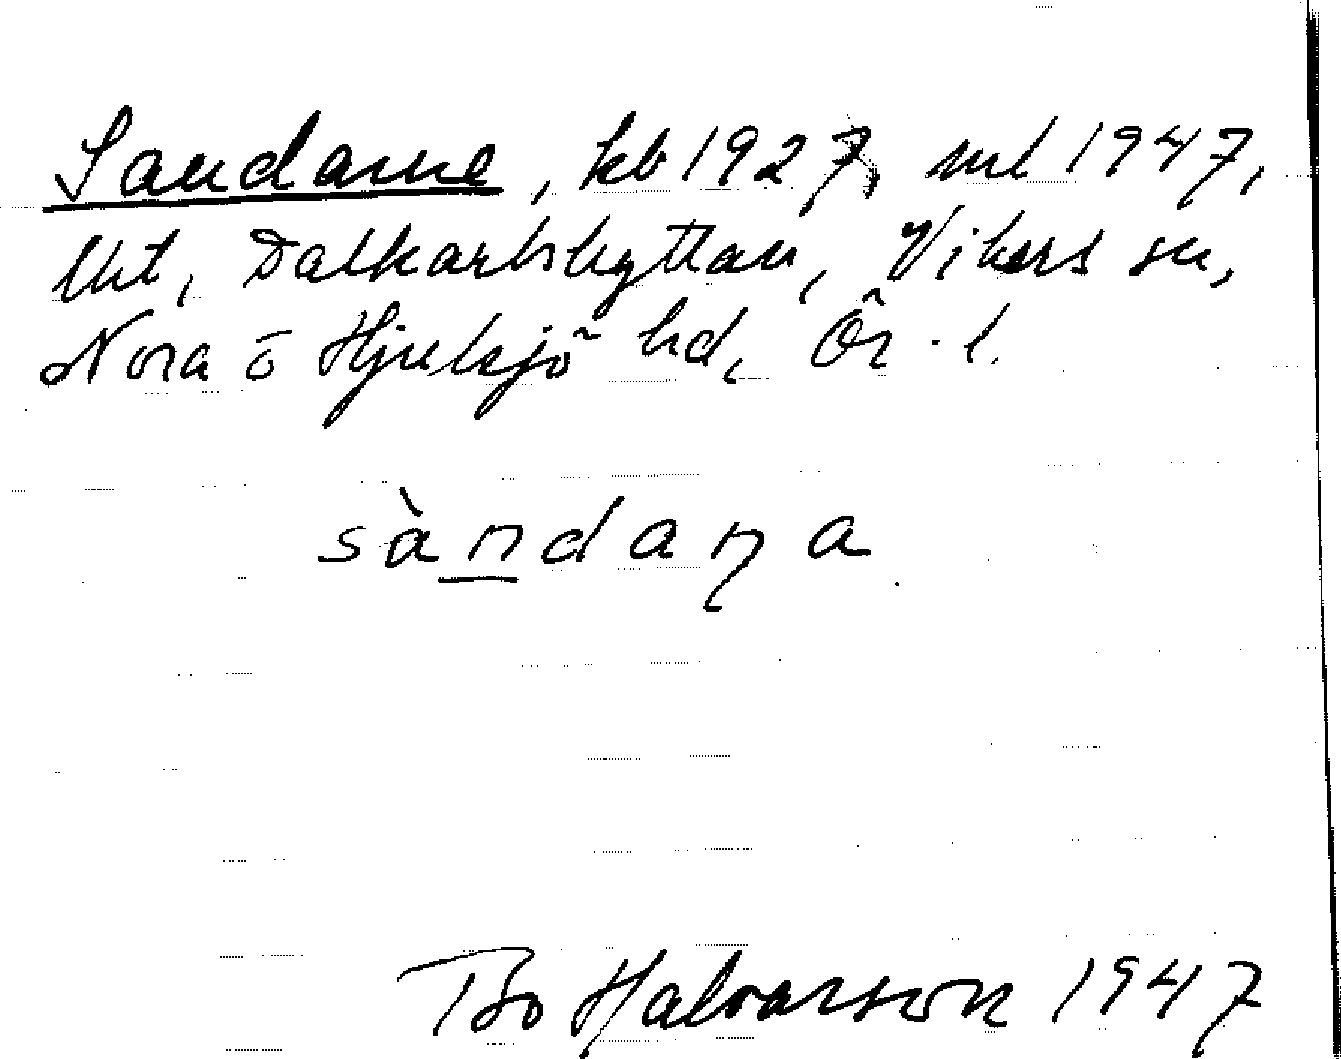 Sandarne, kb 1927, 1947,
lht, Dalkarlshyttan, Vikers sn,
Nora ō Hjulsjö hd, Ör. l.
sàn̲daṇa
Bo Halvarson 1947